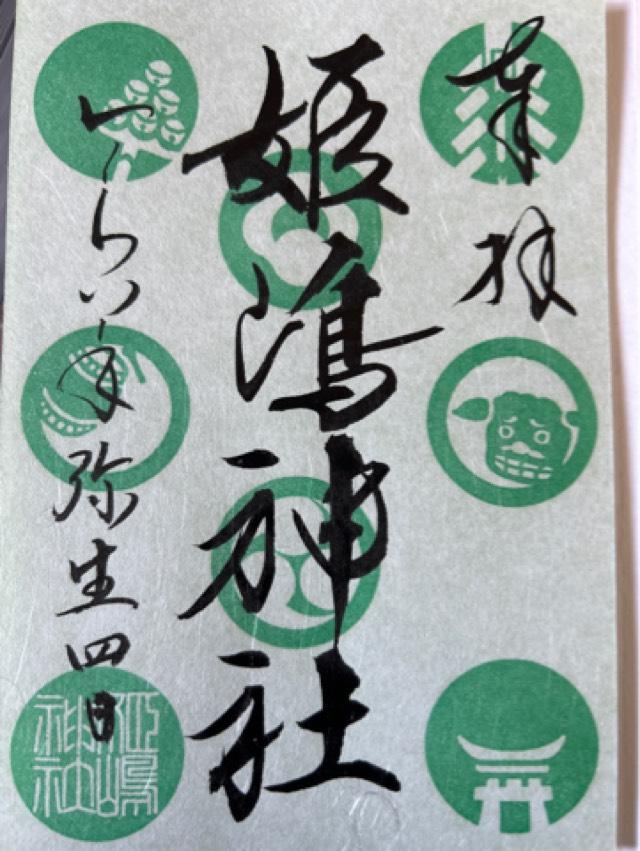 奉拝
姫嶋神社
年弥生四日
姫嶋神社